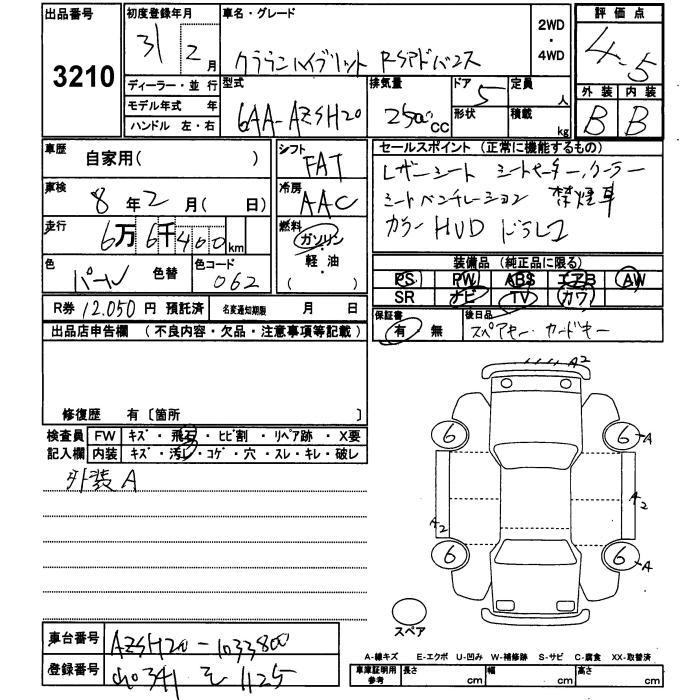 出品番号
3210
初度登録年月
31年2月
車名・グレード
クラウンハイブリット RSアドバンス
2WD
・
4WD
評価点
4.5
外装 内装
B B
ディーラー・並行
モデル年式 年
ハンドル 左・右
型式
6AA-AZSH20
排気量
2500cc
ドア 5
形状
定員 人
積載 kg
車歴
自家用( )
車検
8年2月( 日)
走行
6万6千460km
色
パール 色替
色コード
062
シフト
FAT
冷房
AAC
燃料
ガソリン
・
軽・油
( )
セールスポイント (正常に機能するもの)
レザーシート シートヒーター,クーラー
シートベンチレーション 禁煙車
カラーHUD ドラレコ
装備品 (純正品に限る)
PS PW ABS エアB AW
SR ナビ TV カワ
R券 12,050 円 預託済
名変通知期限 月 日
保証書
有 無
後日品
スペアキー・カードキー
出品店申告欄 (不良内容・欠品・注意事項等記載)
修復歴 有〔箇所 〕
検査員
記入欄
FW キズ・飛石・ヒビ割・リペア跡・X要
内装 キズ・汚れ・コゲ・穴・スレ・キレ・破レ
外装A
A2
6 6 A
A2 A2
6 6 A
スペア
車台番号 AZSH20-1033800
登録番号 1125
A-線キズ E-エクボ U-凹み W-補修跡 S-サビ C-腐食 XX-取替済
車庫証明用
参考
長さ cm 幅 cm 高さ cm